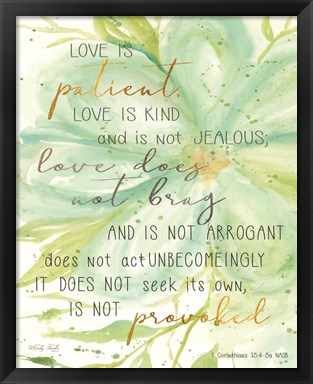 LOVE IS
patient,
LOVE IS KIND
and is not JEALOUS;
love does
not brag
AND IS NOT ARROGANT
does not act UNBECOMEINGLY
IT DOES NOT seek its own,
IS NOT
provoked
1 Corinthians 15:4-5a NASB